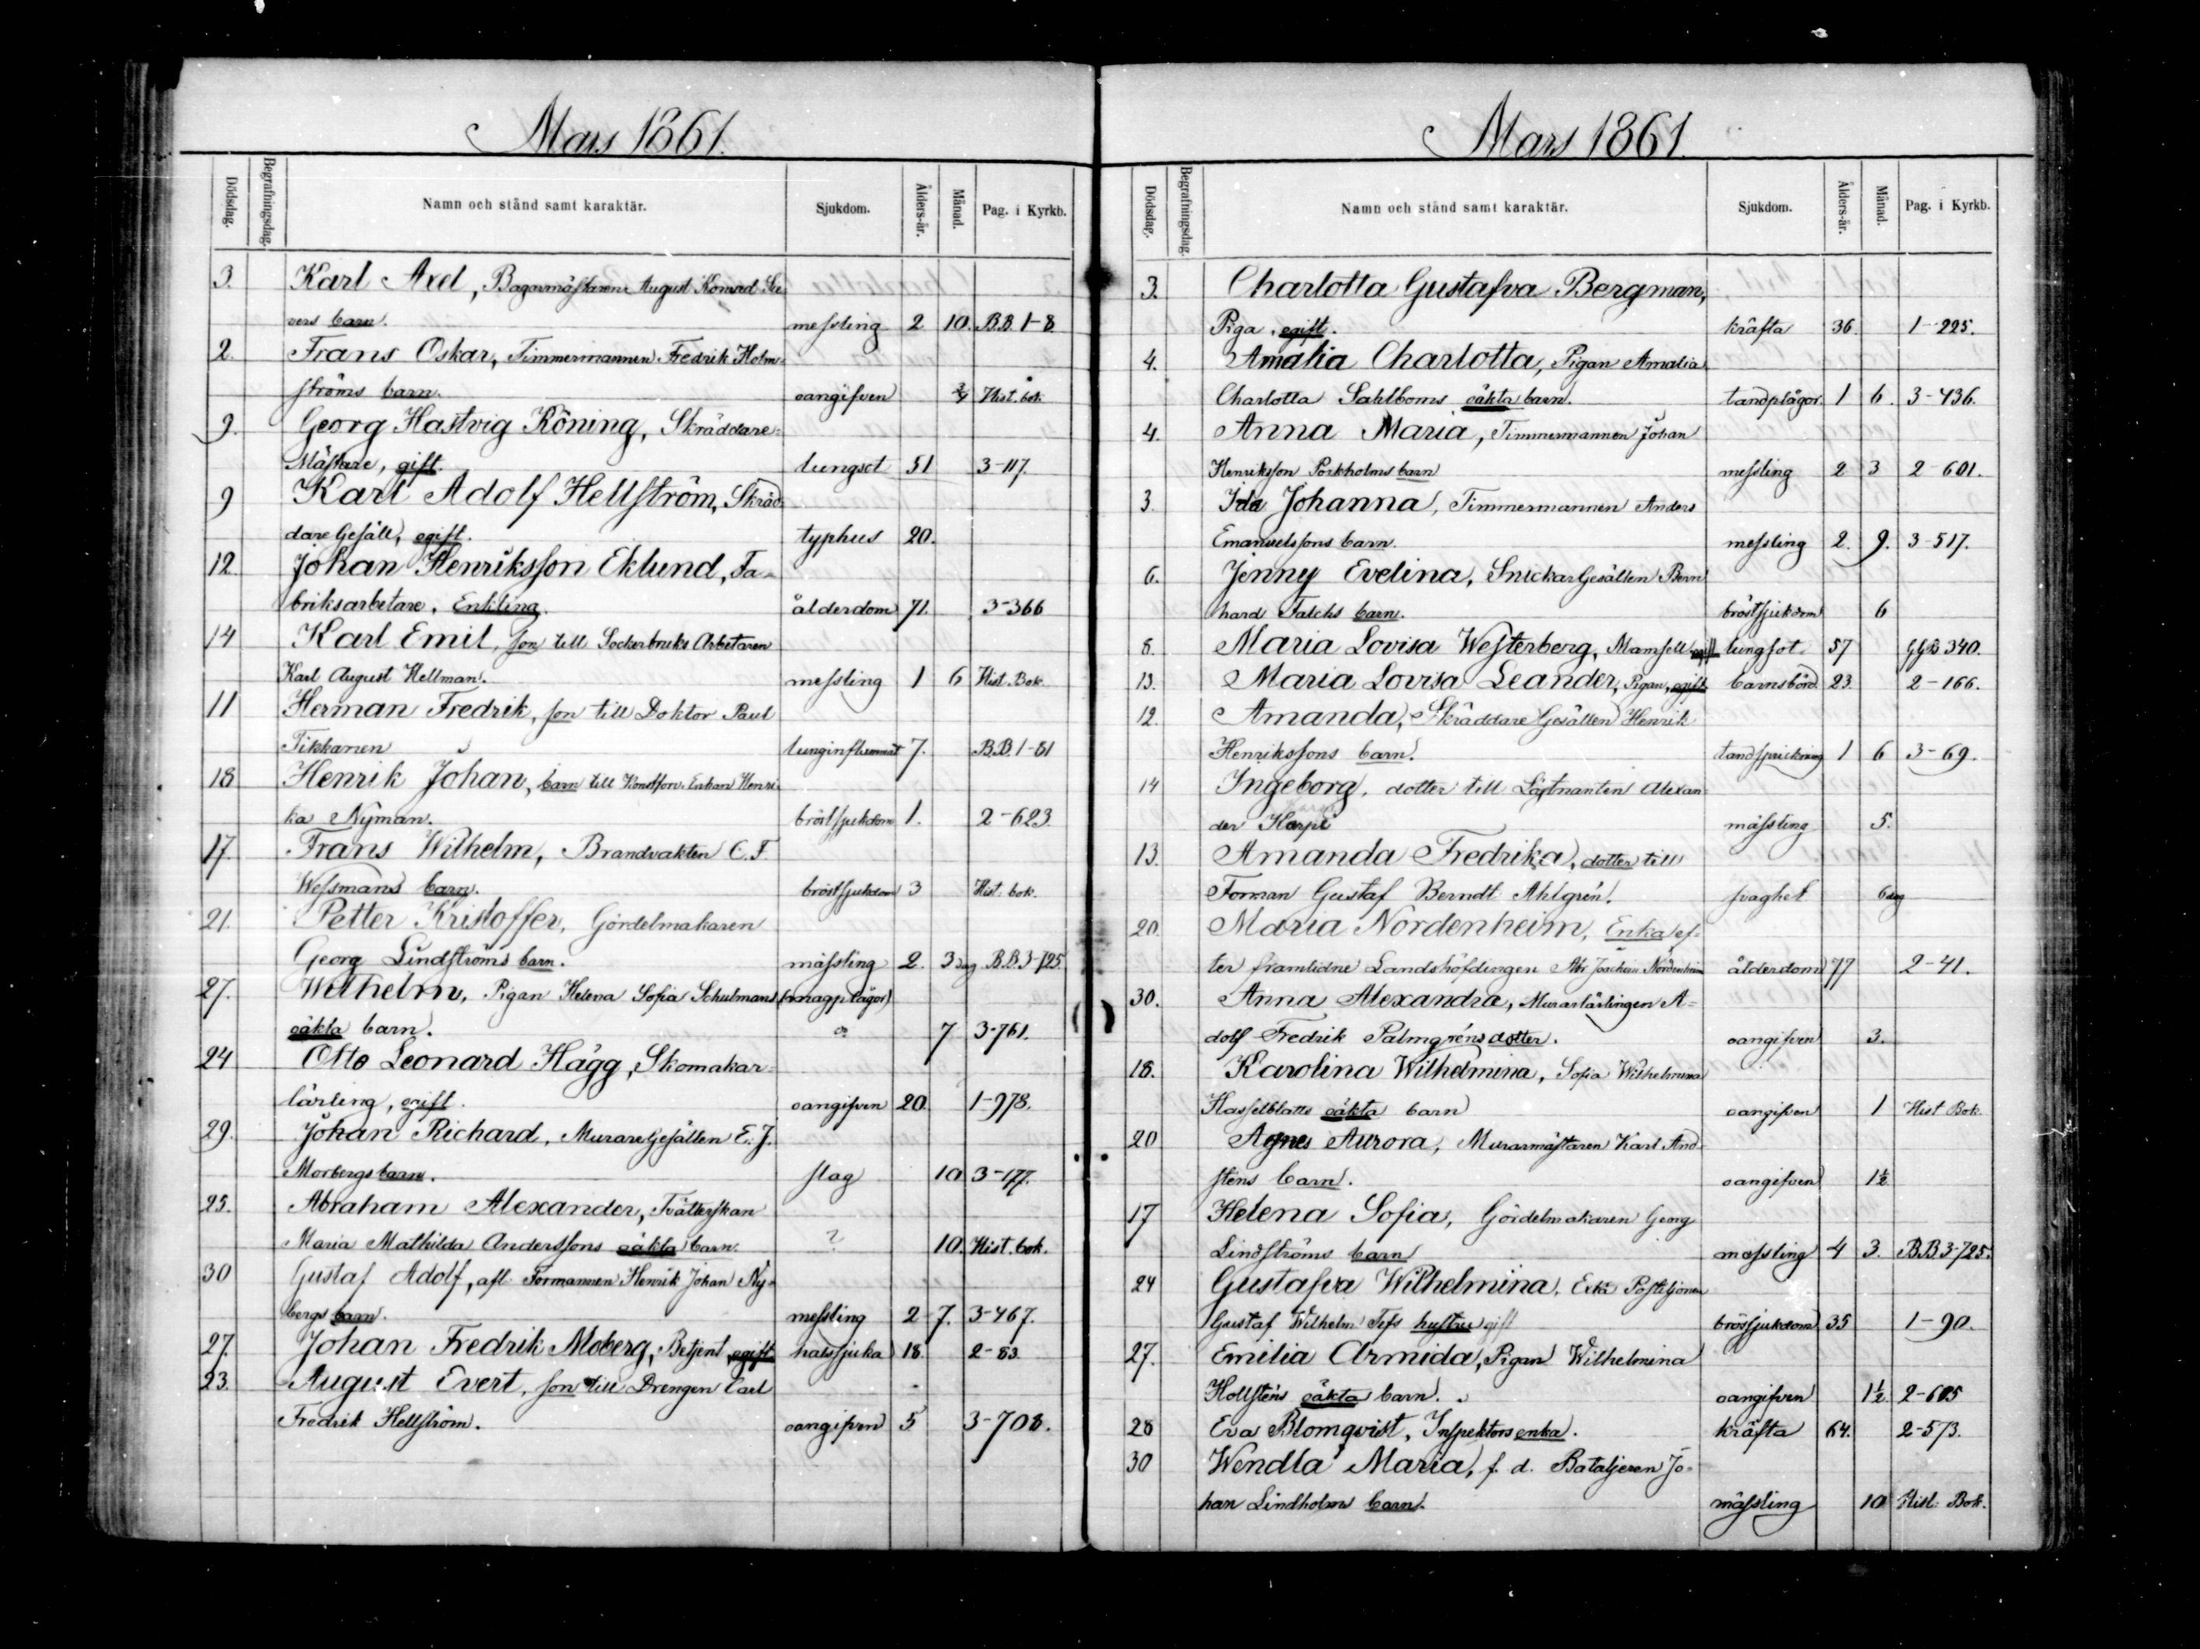 Mars 1861.
Dödsdag. Begrafningsdag. Namn och stånd samt karaktär. Sjukdom. Ålders-år. Månad. Pag. i Kyrkb.
3. Karl Axel, Bagarmästaren August Konrad
vers barn. messling 2 10. B.B. 1-8
2. Frans Oskar, Timmermannen Fredrik Holm-
ströms barn. oangifven 3/4 Hist. bok.
9. Georg Hastvig Köning, Skräddare-
Mästare, gift. lungsot 51 3-117.
9 Karl Adolf Hellström, Skräd-
dare Gesäll, ogift. typhus 20.
12. Johan Henriksson Eklund, Fa-
briksarbetare, Enkling. ålderdom 71. 3-366
14 Karl Emil, son till Sockerbruks Arbetaren
Karl August Hellman. messling 1 6 Hist. Bok.
11 Herman Fredrik, son till Doktor Paul
Tikkanen lunginflammat 7. B.B. 1-81
18 Henrik Johan, barn till Enkan Henri-
ka Nyman. bröstsjukdom 1. 2-623.
17. Frans Wilhelm, Brandvakten C. F.
Wessmans barn. bröstsjukdom 3 Hist. bok.
21. Petter Kristoffer, Gördelmakaren
Georg Lindströms barn. mässling 2. 3 dag B.B. 3-725.
27. Wilhelm, Pigan Helena Sofia Schulmans (magplågor)
oäkta barn. 7 3-761.
24 Otto Leonard Hägg, Skomakar-
lärling, ogift. oangifven 20. 1-978.
29. Johan Richard, Murare Gesällen E. J.
Morbergs barn. slag 10 3-177.
25. Abraham Alexander, Tvätterskan
Maria Mathilda Anderssons oäkta barn. ? 10. Hist. bok.
30 Gustaf Adolf, afl. Formannen Henrik Johan Ny-
bergs barn. messling 2 7. 3-467.
27. Johan Fredrik Moberg, Betjent, ogift halssjuka 18. 2-83.
23. August Evert, son till Drengen Carl
Fredrik Hellström. oangifven 5 3-708.
Mars 1861.
Dödsdag. Begrafningsdag. Namn och stånd samt karaktär. Sjukdom. Ålders-år. Månad. Pag. i Kyrkb.
3. Charlotta Gustafva Bergman,
Piga, ogift. kräfta 36. 1-225.
4. Amalia Charlotta, Pigan Amalia
Charlotta Sahlboms oäkta barn. tandplågor. 1 6. 3-436.
4. Anna Maria, Timmermannen Johan
Henriksson Porkholms barn messling 2 3 2-601.
3. Ida Johanna, Timmermannen Anders
Emanuelssons barn. messling 2. 9. 3-517.
6. Jenny Evelina, Snickar Gesällen Bern
hard Falcks barn. bröstsjukdom 6
8. Maria Lovisa Westerberg, Mamsell ogift lungsot 57 340.
13. Maria Lovisa Leander, Pigan, ogift. barnsbörd 23. 2-166.
12. Amanda, Skräddare Gesällen Henrik
Henrikssons barn. tandsprickning 1 6 3-69.
14 Ingeborg, dotter till Löjtnanten Alexan
der mässling 5.
13. Amanda Fredrika, dotter till
Forman Gustaf Berndt Ahlgrén. svaghet 6 dag
20. Maria Nordenheim, Enka ef-
ter framlidne Landshöfdingen Abr. Joachim Nordenheim ålderdom 77 2-41.
30. Anna Alexandra, Murarlärlingen A-
dolf Fredrik Palmgréns dotter. oangifven 3.
18. Karolina Wilhelmina, Sofia Wilhelmina
Hasselblatts oäkta barn oangifven 1 Hist Bok.
20 Agnes Aurora, Murarmästaren Karl And-
sténs barn. oangifven 1½
17 Helena Sofia, Gördelmakaren Georg
Lindströms barn messling 4 3. B.B. 3-725.
24 Gustafva Wilhelmina, Extra Postiljonen
Gustaf Wilhelm hustru gift brösjukdom 35 1-90.
27. Emilia Armida, Pigan Wilhelmina
Hollsténs oäkta barn. oangifven 1½. 2-605
28 Eva Blomqvist, Inspektors enka. kräfta 64. 2-573.
30 Wendla Maria, f. d. Bataljeren Jo-
han Lindholms barn. mässling 10 Hist. Bok.